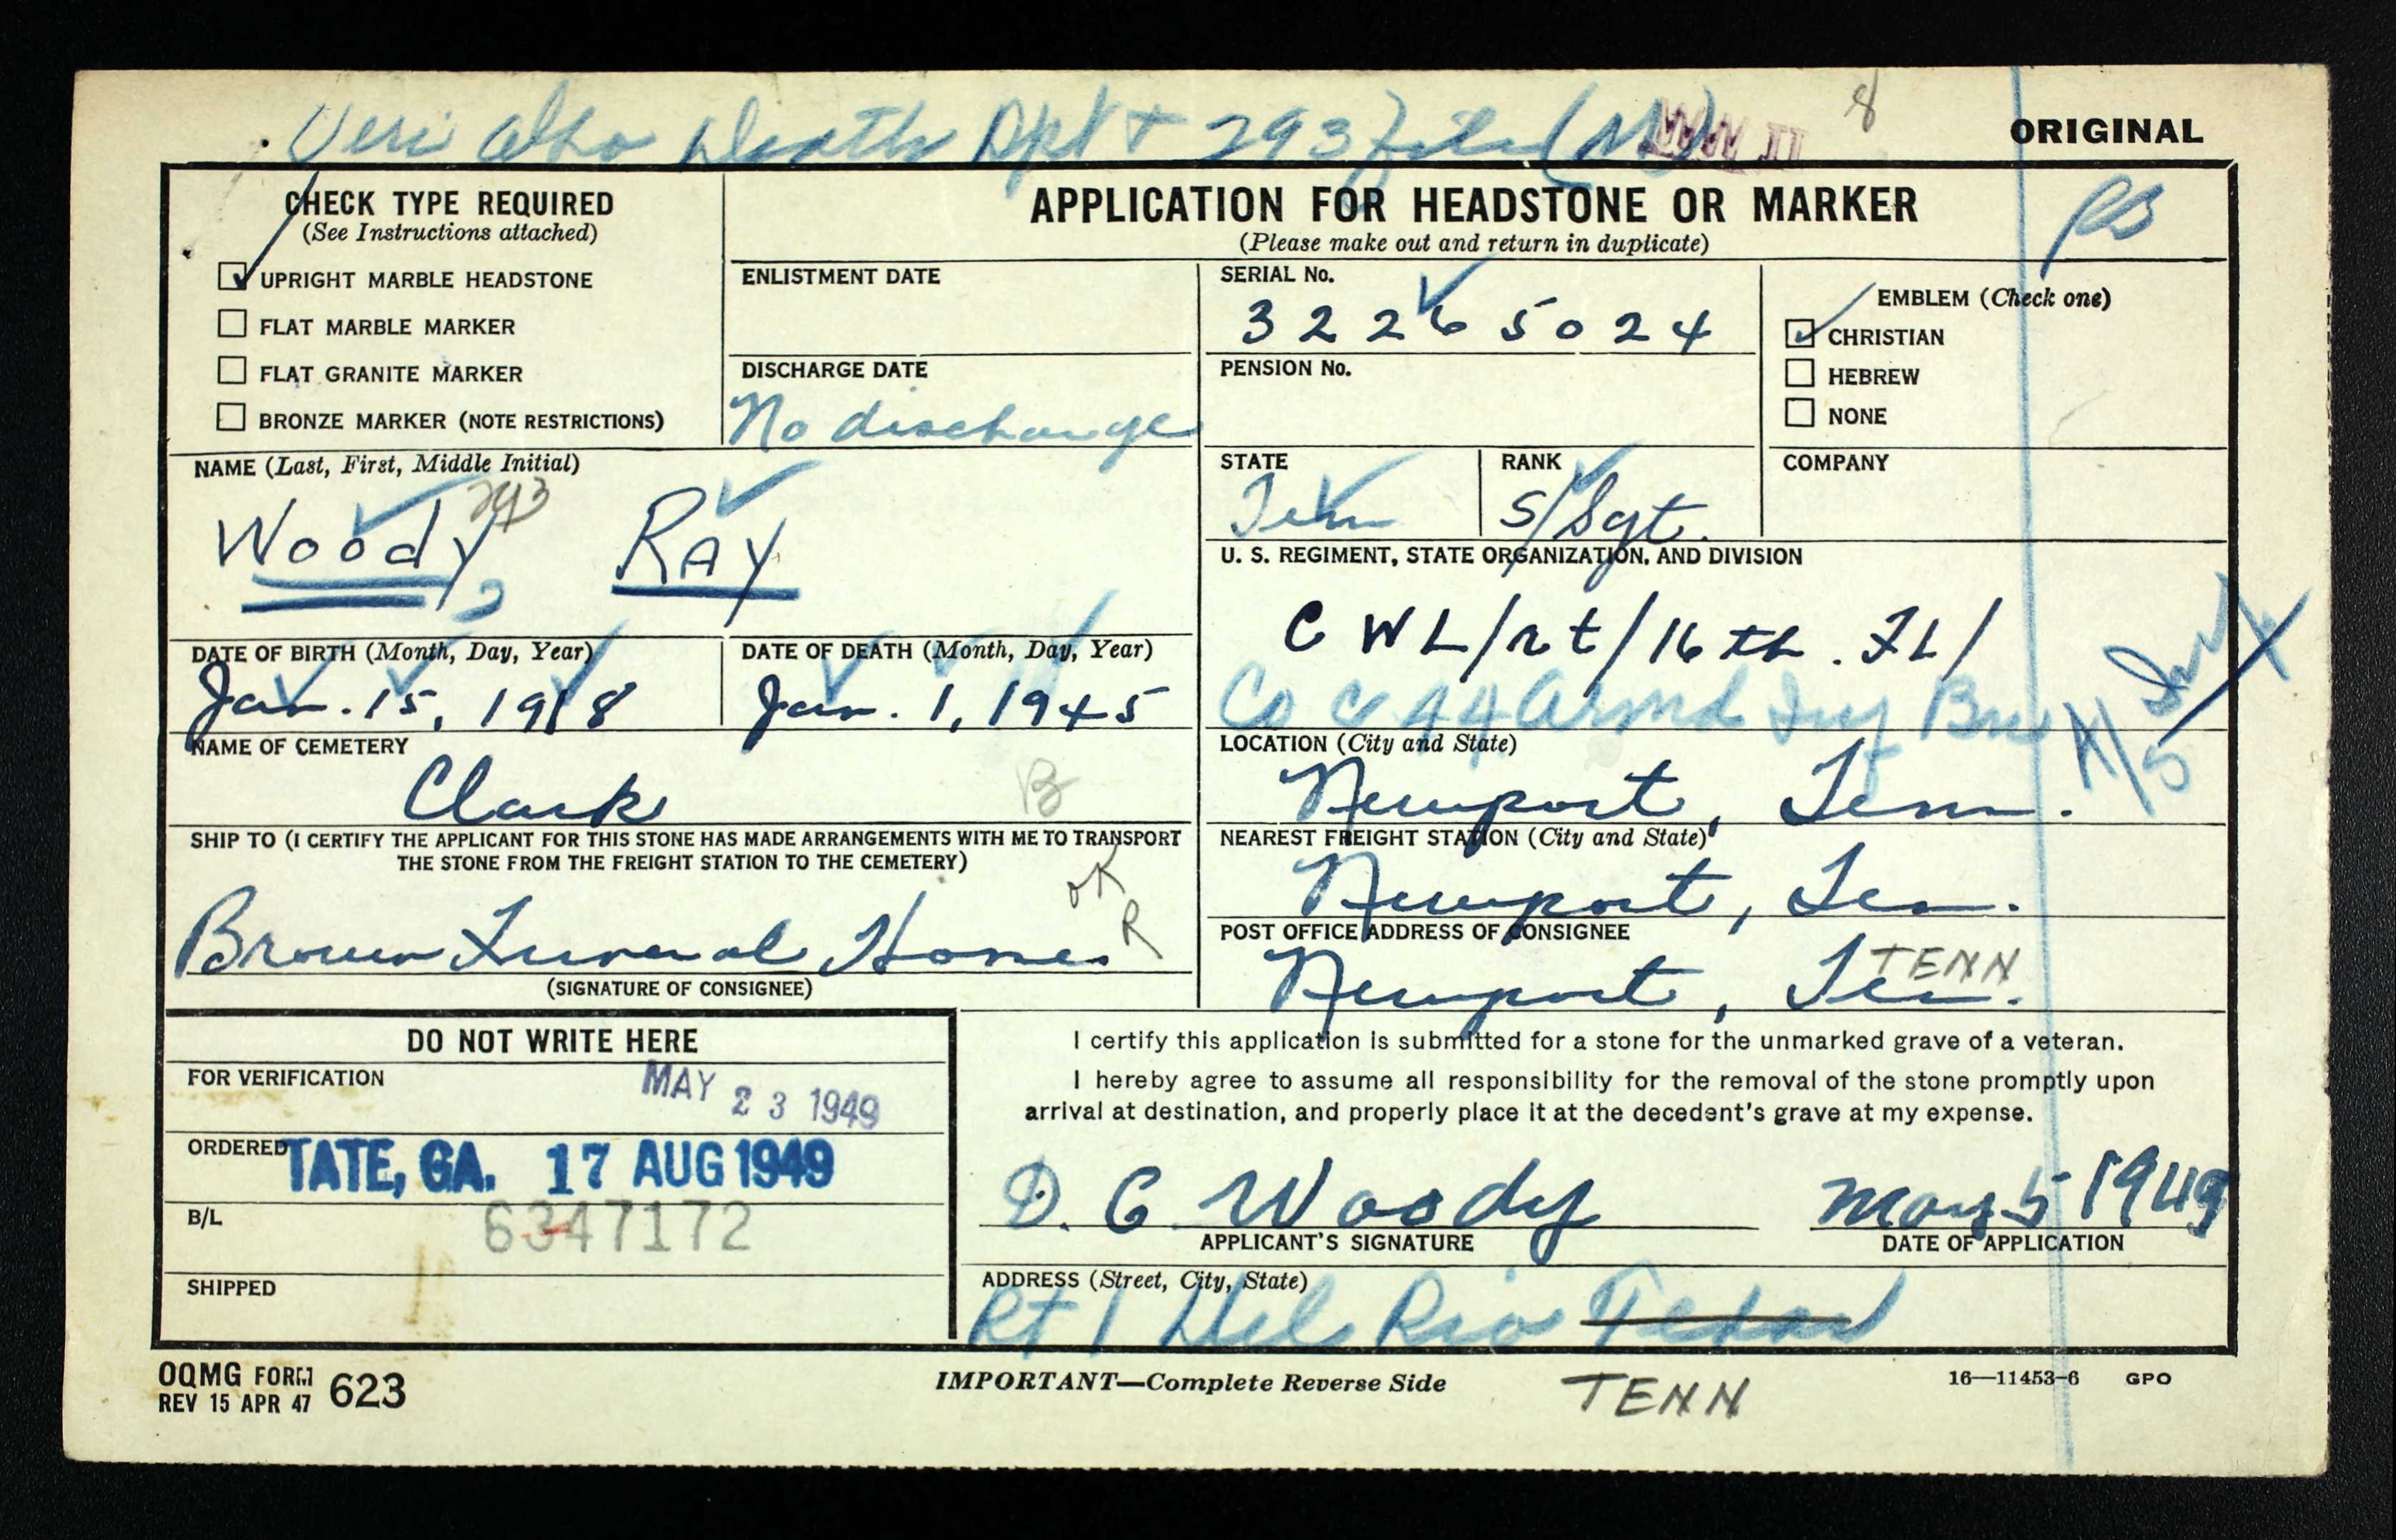 Veri also Death Rpt + 293 file (M) WW II 8
ORIGINAL
CHECK TYPE REQUIRED
(See Instructions attached)
UPRIGHT MARBLE HEADSTONE
FLAT MARBLE MARKER
FLAT GRANITE MARKER
BRONZE MARKER (NOTE RESTRICTIONS)
APPLICATION FOR HEADSTONE OR MARKER
(Please make out and return in duplicate)
ENLISTMENT DATE
DISCHARGE DATE
No discharge
SERIAL No.
32265024
PENSION No.
EMBLEM (Check one)
CHRISTIAN
HEBREW
NONE
NAME (Last, First, Middle Initial)
Woody, Ray
293
STATE
Tenn
RANK
S/Sgt.
COMPANY
U. S. REGIMENT, STATE ORGANIZATION, AND DIVISION
C W L/rt/16th. FL/
Co C 44 Armd Inf Bn
DATE OF BIRTH (Month, Day, Year)
Jan. 15, 1918
DATE OF DEATH (Month, Day, Year)
Jan. 1, 1945
NAME OF CEMETERY
Clark
B
LOCATION (City and State)
Newport, Tenn.
SHIP TO (I CERTIFY THE APPLICANT FOR THIS STONE HAS MADE ARRANGEMENTS WITH ME TO TRANSPORT
THE STONE FROM THE FREIGHT STATION TO THE CEMETERY)
OK
R
Brown Funeral Home.
(SIGNATURE OF CONSIGNEE)
NEAREST FREIGHT STATION (City and State)
Newport, Ten.
POST OFFICE ADDRESS OF CONSIGNEE
TENN
Newport, Ten.
DO NOT WRITE HERE
FOR VERIFICATION
MAY 23 1949
ORDERED
TATE, GA. 17 AUG 1949
B/L
6347172
SHIPPED
I certify this application is submitted for a stone for the unmarked grave of a veteran.
I hereby agree to assume all responsibility for the removal of the stone promptly upon
arrival at destination, and properly place it at the decedent's grave at my expense.
D. C. Woody
APPLICANT'S SIGNATURE
May 5 1949
DATE OF APPLICATION
ADDRESS (Street, City, State)
Rt 1 Del Rio Texas
TENN
OQMG FORM 623
REV 15 APR 47
IMPORTANT—Complete Reverse Side
16—11453-6 GPO